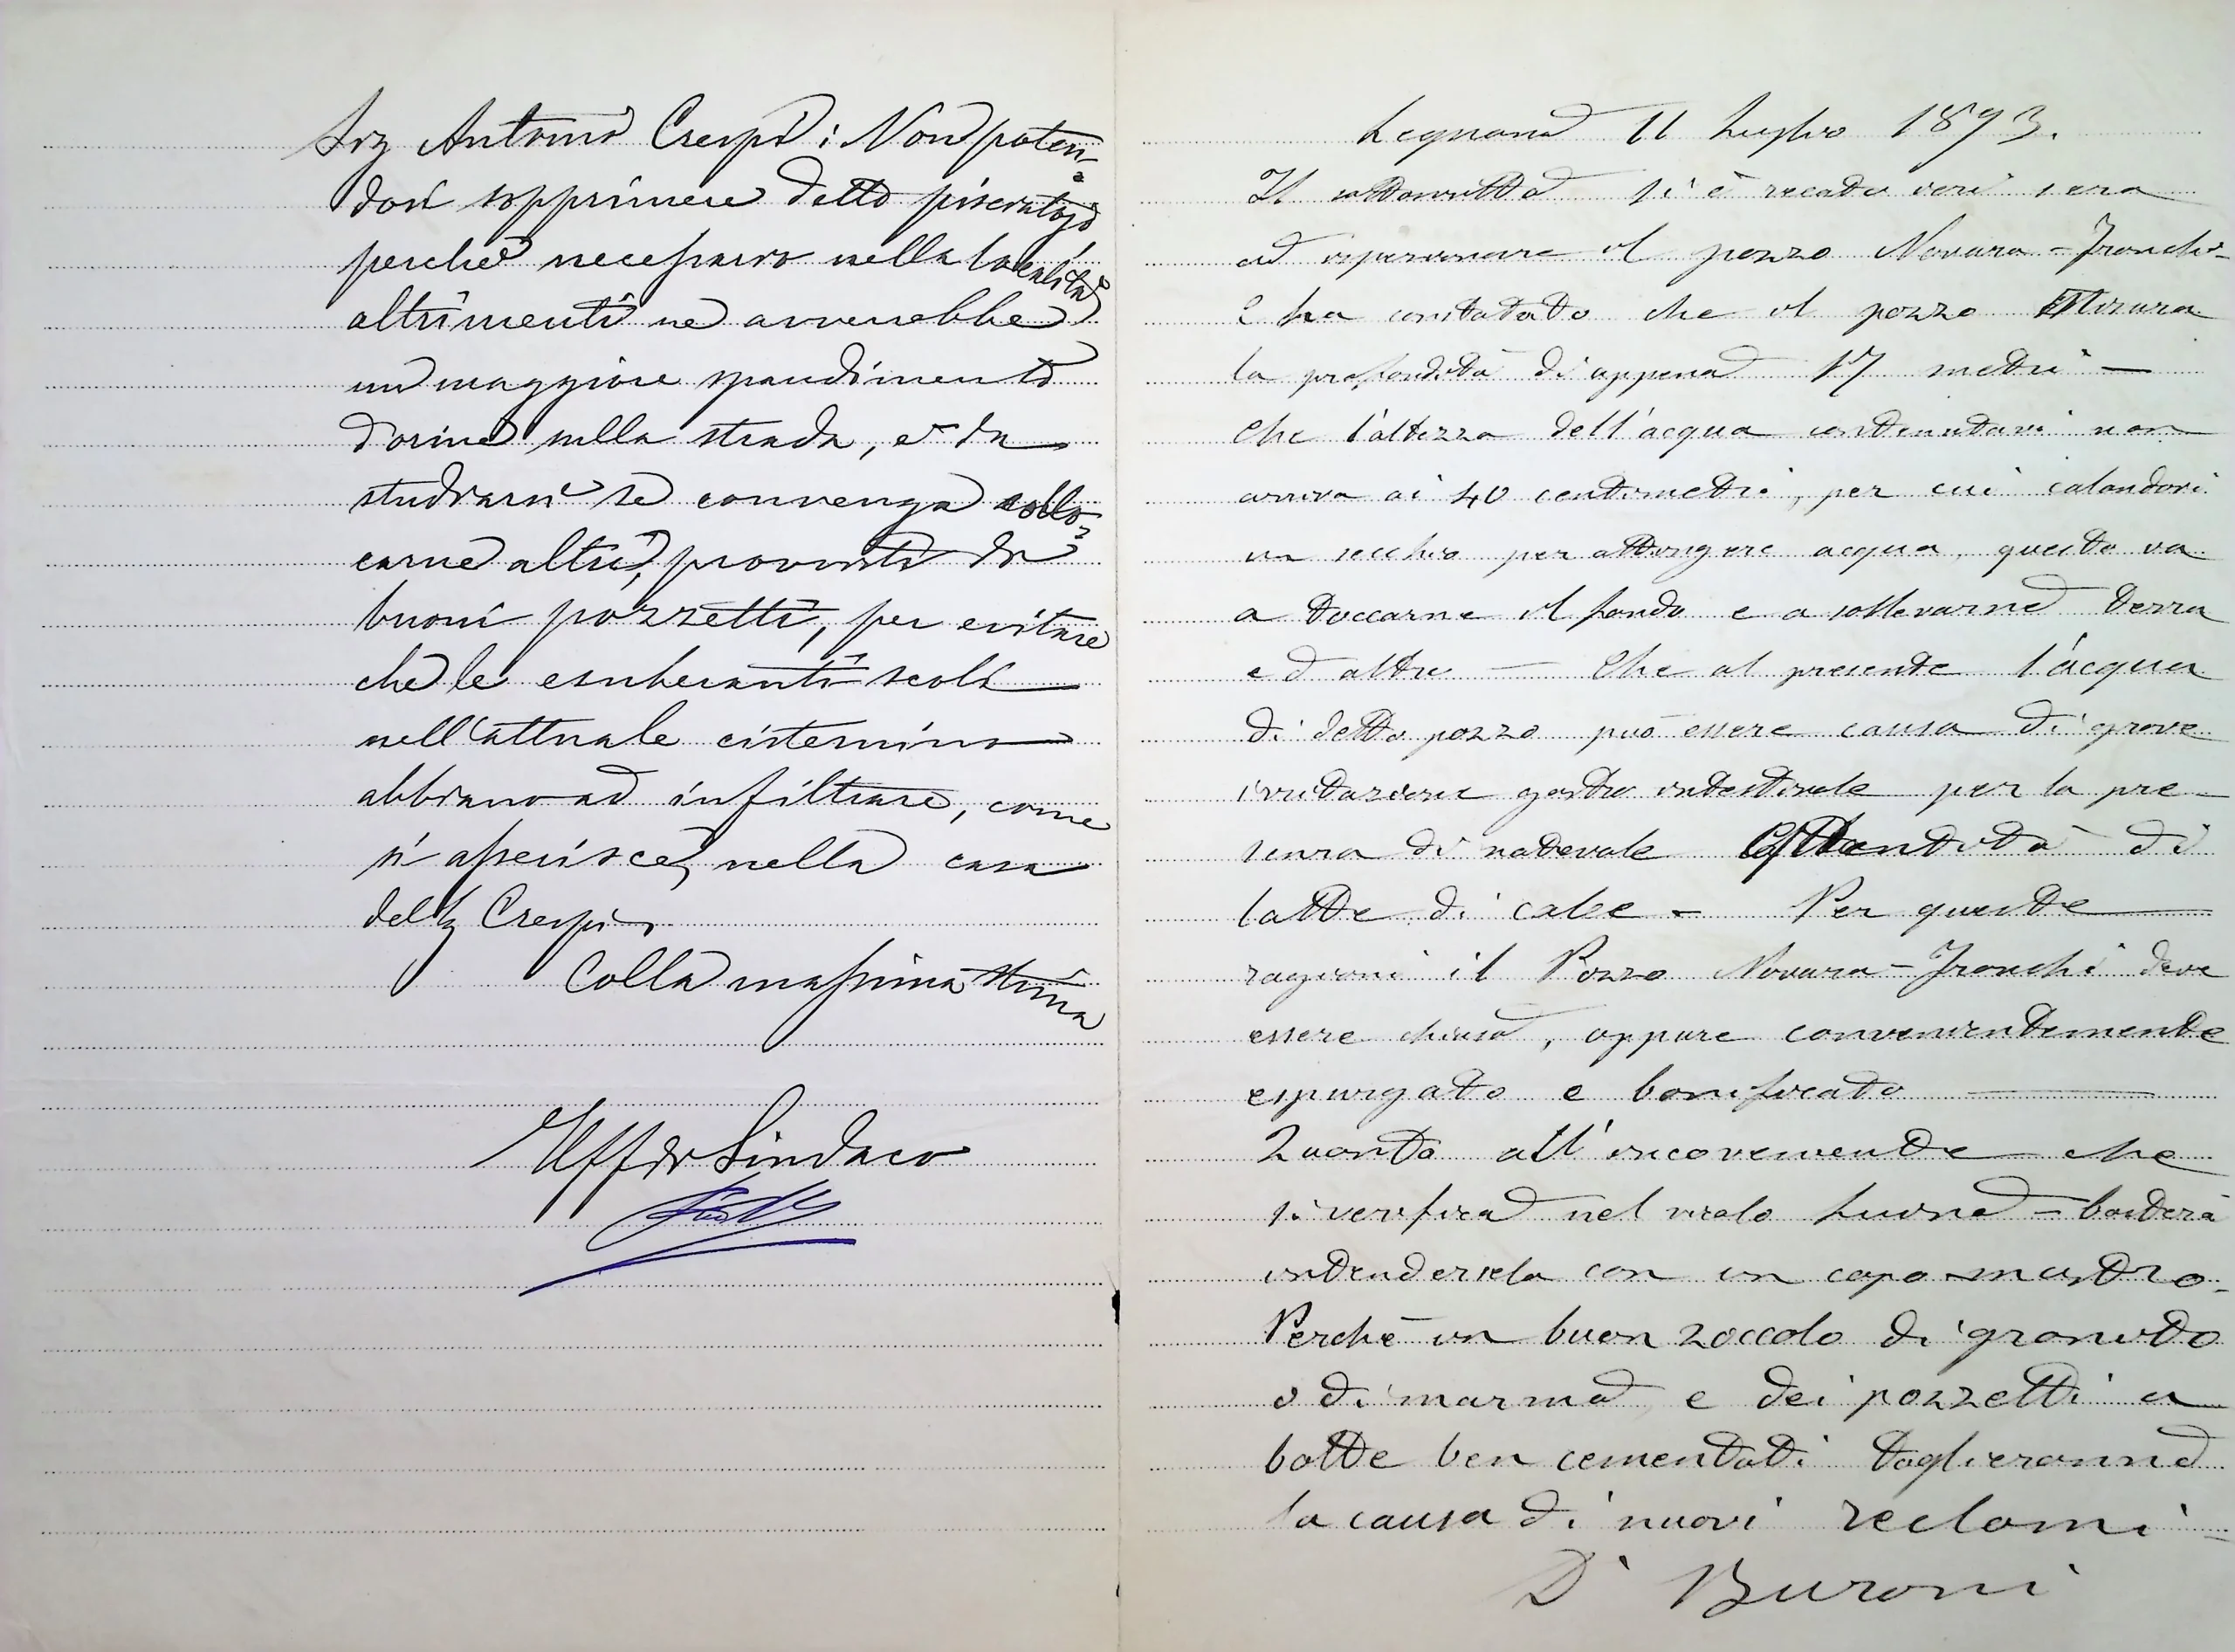 Sig Antonio Crespi: Non poten-
dosi sopprimere detto pisciatojo
perchè necessario nella località
altrimenti ne avverrebbe
un maggiore spandimento
d'orine sulla strada, è da
studiarsi se convenga collo-
carne altri, provvisti di
buoni pozzetti, per evitare
che le esuberanti scoli
nell'attuale cisternino
abbiano ad infiltrare, come
si asserisce, nella casa
del Sig Crespi.
Colla massima stima
Il ff di Sindaco
Legnano 11 Luglio 1893.
Il sottoscritto si è recato ieri sera
ad ispezionare il pozzo Novara-Tronchi-
E ha constatato che il pozzo misura
la profondità di appena 17 metri —
Che l'altezza dell'acqua contenutavi non
arriva ai 40 centimetri, per cui calandovi
un secchio per attingere acqua, questo va
a toccarne il fondo e a sollevarne terra
ed altro — Che al presente l'acqua
di detto pozzo può essere causa di grave
irritazione gastro intestinale per la pre-
senza di notevole quantità di
latte di calce - Per queste
ragioni il Pozzo Novara-Tronchi deve
essere chiuso, oppure convenientemente
espurgato e bonificato —
Quanto all'incoveniente che
si verifica nel vicolo Luina - basterà
intendersela con un capo-mastro-
Perchè un buon zoccolo di granito
o di marmo, e dei pozzetti a
botte ben cementati toglieranno
la causa di nuovi reclami -
Dr Buroni